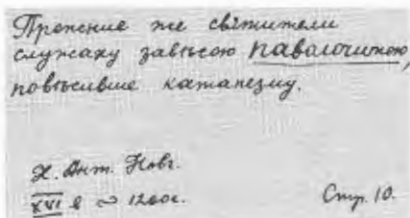 Прочение же свѣтители
служаху завѣсою паволочитою,
повѣсивше катапезму.
Х. Ант. Новг.
XVI в ∾ 1200г.
Стр. 10.